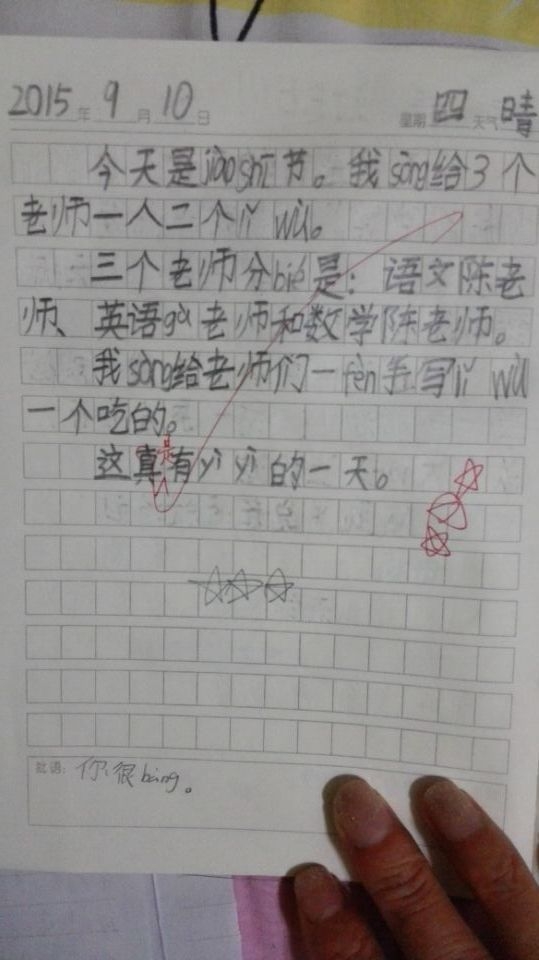 2015年 9月 10日 星期 四 天气 晴
今天是jiāoshī节。我sòng给3个
老师一人二个lǐ wù。
三个老师分bié是：语文陈老
师、英语gù老师和数学陈老师。
我sòng给老师们一fèn手写lǐ wù
一个吃的。
这真是有yì yì的一天。
批语：你很bàng。